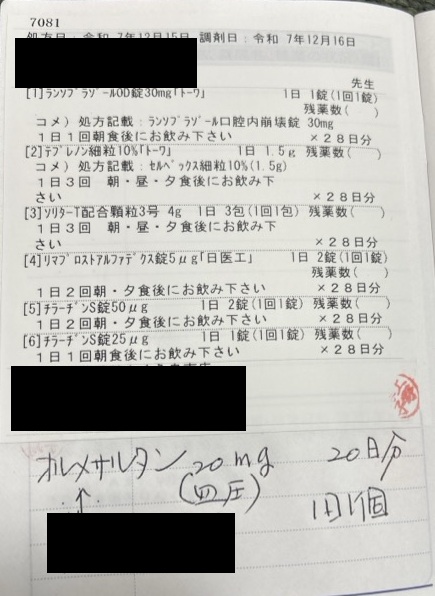 7081
処方日：令和 7年12月15日 調剤日：令和 7年12月16日
先生
[1]ﾗﾝｿﾌﾟﾗｿﾞｰﾙOD錠30mg｢ﾄｰﾜ｣ 1日 1錠(1回1錠)
残薬数( )
コメ）処方記載：ﾗﾝｿﾌﾟﾗｿﾞｰﾙ口腔内崩壊錠 30mg
1日1回朝食後にお飲み下さい ×28日分
[2]ﾃﾌﾟﾚﾉﾝ細粒10%｢ﾄｰﾜ｣ 1日 1.5g 残薬数( )
コメ）処方記載：ｾﾙﾍﾞｯｸｽ細粒10%(1.5g)
1日3回 朝・昼・夕食後にお飲み下
さい ×28日分
[3]ｿﾘﾀｰT配合顆粒3号 4g 1日 3包(1回1包) 残薬数( )
1日3回 朝・昼・夕食後にお飲み下
さい ×28日分
[4]ﾘﾏﾌﾟﾛｽﾄｱﾙﾌｧﾃﾞｸｽ錠5μg｢日医工｣ 1日 2錠(1回1錠)
残薬数( )
1日2回朝・夕食後にお飲み下さい ×28日分
[5]ﾁﾗｰﾁﾞﾝS錠50μg 1日 2錠(1回1錠) 残薬数( )
1日2回朝・夕食後にお飲み下さい ×28日分
[6]ﾁﾗｰﾁﾞﾝS錠25μg 1日 1錠(1回1錠) 残薬数( )
1日1回朝食後にお飲み下さい ×28日分
オルメサルタン 20mg 20日分
(血圧) 1日1個
↑